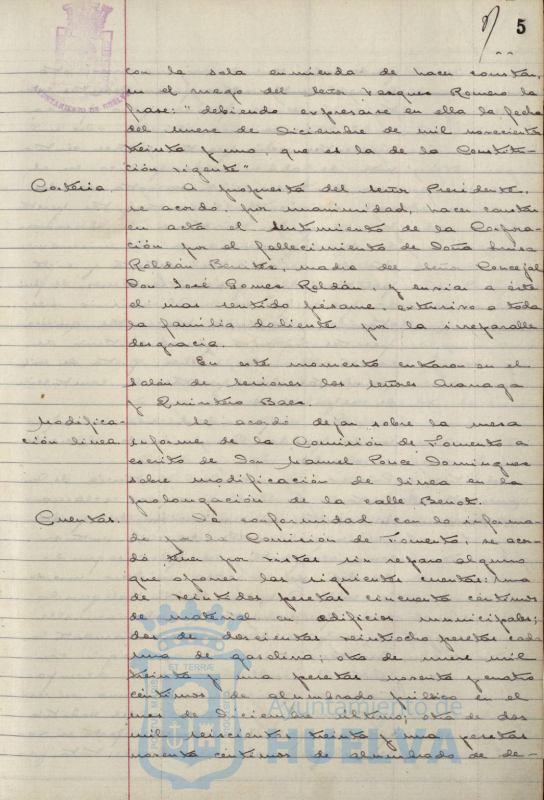 5
AYUNTAMIENTO DE HUELVA
con la sola enmienda de hacer constar,
en el ruego del señor Vazquez Romero la
frase: "debiendo expresarse en ella la fecha
del nueve de Diciembre de mil novecientos
treinta y uno, que es la de la Constitu-
ción vigente"
Cortesia. A propuesta del señor Presidente,
se acordó, por unanimidad, hacer constar
en acta el sentimiento de la Corpora-
ción por el fallecimiento de Doña Luisa
Roldán Benitez, madre del señor Concejal
Don José Gomez Roldán, y enviar a éste
el mas sentido pésame, extensivo a toda
la familia doliente por la irreparable
desgracia.
En este momento entraron en el
salón de sesiones los señores Aranaga
y Quintero Baez.
Modifica- Se acordó dejar sobre la mesa
ción linea informe de la Comisión de Fomento a
escrito de Don Manuel Ponce Dominguez
sobre modificación de linea en la
prolongación de la calle Benot.
Cuentas. De conformidad con lo informa-
do por la Comisión de Fomento, se acor-
dó tener por vistas sin reparo alguno
que oponer las siguientes cuentas: una
de veintidos pesetas cincuenta centimos
de material en edificios municipales;
dos de doscientas veintiocho pesetas cada
una de gasolina; otra de nueve mil
treinta y una pesetas noventa y cuatro
centimos de alumbrado público en el
mes de Diciembre último; otra de dos
mil seiscientas treinta y una pesetas
noventa centimos de alumbrado de de-
Ayuntamiento de
HUELVA